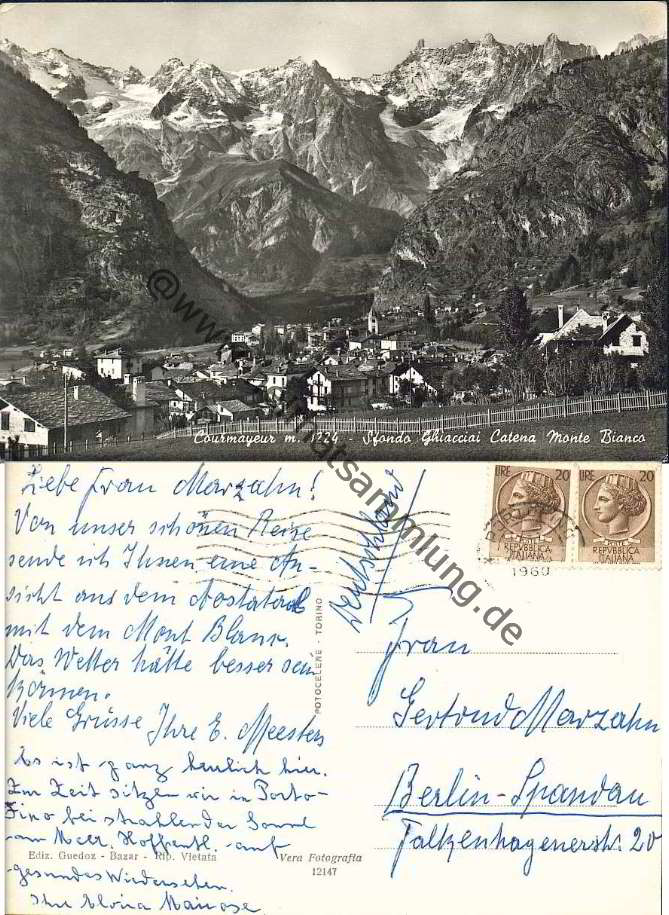 Courmayeur m. 1224 - Sfondo Ghiacciai Catena Monte Bianco
Liebe Frau Marzahn!
Von unser schönen Reise
sende ich Ihnen eine An-
sicht aus dem Aostatal
mit dem Mont Blanc.
Das Wetter hätte besser sein
können.
Viele Grüsse Ihre E. Meesters
Es ist ganz herrlich hier.
Zur Zeit sitzen wir in Porto-
Fino bei strahlender Sonne
am Meer. Hoffentl. auf
gesundes Wiedersehen.
Ihre
Ediz. Guedoz - Bazar - Rip. Vietata
Vera Fotografia
12147
FOTOCELERE - TORINO
LIRE 20
REPVBBLICA
ITALIANA
LIRE 20
REPVBBLICA
ITALIANA
1960
Deutschland
Frau
Gertrud Marzahn
Berlin-Spandau
Falkenhagenerstr. 20